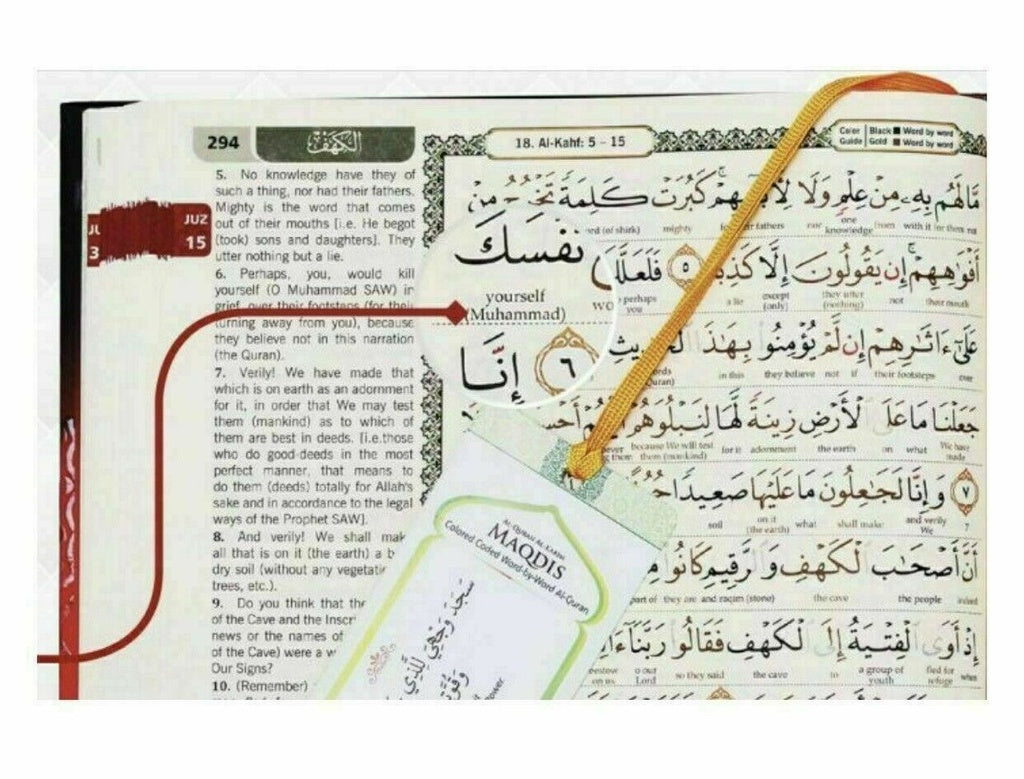 294
الكهف
18. Al-Kahf: 5 - 15
Color Guide
Black ■ Word by word
Gold ■ Word by word
JUZ
15
5. No knowledge have they of
such a thing, nor had their fathers.
Mighty is the word that comes
out of their mouths [i.e. He begot
(took) sons and daughters]. They
utter nothing but a lie.
6. Perhaps, you, would kill
yourself (O Muhammad SAW) in
grief, over their footsteps (for their
turning away from you), because
they believe not in this narration
(the Quran).
7. Verily! We have made that
which is on earth as an adornment
for it, in order that We may test
them (mankind) as to which of
them are best in deeds. [i.e.those
who do good-deeds in the most
perfect manner, that means to
do them (deeds) totally for Allah's
sake and in accordance to the legal
ways of the Prophet SAW].
8. And verily! We shall mak
all that is on it (the earth) a b
dry soil (without any vegetati
trees, etc.).
9. Do you think that the
of the Cave and the Inscri
news or the names of
of the Cave) were a w
Our Signs?
10. (Remember)
مَّا لَهُم بِهِۦ مِنْ عِلْمٍ وَلَا كَبُرَتْ كَلِمَةً
mighty nor knowledge
نَفْسَكَ
yourself
(Muhammad)
إِنَّا ٦
أَفْوَاهِهِمْ إِن يَقُولُونَ إِلَّا كَذِبًا ٥ فَلَعَلَّكَ
their mouth not they utter (nothing) except (only) a lie perhaps you
عَلَىٰٓ ءَاثَٰرِهِمْ إِن لَّمْ يُؤْمِنُوا۟ بِهَٰذَا
over their footsteps if not they believe in this
جَعَلْنَا مَا عَلَى ٱلْأَرْضِ زِينَةً لَّهَا لِنَبْلُوَهُمْ
We have made what on the earth adornment for it because We will test them (mankind)
٧ وَإِنَّا لَجَٰعِلُونَ مَا عَلَيْهَا صَعِيدًا
7 and verily We shall make what on it (the earth) soil
أَنَّ أَصْحَٰبَ ٱلْكَهْفِ وَٱلرَّقِيمِ كَانُوا۟
indeed the people the cave and raqim (stone) they are part of
إِذْ أَوَى ٱلْفِتْيَةُ إِلَى ٱلْكَهْفِ فَقَالُوا۟ رَبَّنَآ
when fled for refuge a group of youth to the cave so they said o our Lord bestow on us
AL-QURAN AL-KARIM
MAQDIS
Colored Coded Word-by-Word Al-Quran
سَجَدَ وَجْهِيَ لِلَّذِي